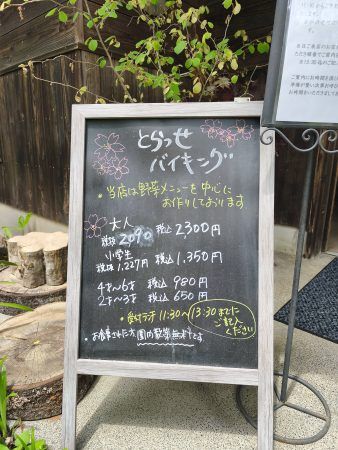 とらっせ
バイキング
・当店は野菜メニューを中心に
お作りしております
大人
税抜 2,090 税込 2,300円
小学生
税抜 1,227円 税込 1,350円
4才〜6才 税込 980円
2才〜3才 税込 650円
・受付ランチ 11:30〜13:30までに
ご記入
ください
・お食事された方 園内散策無料です